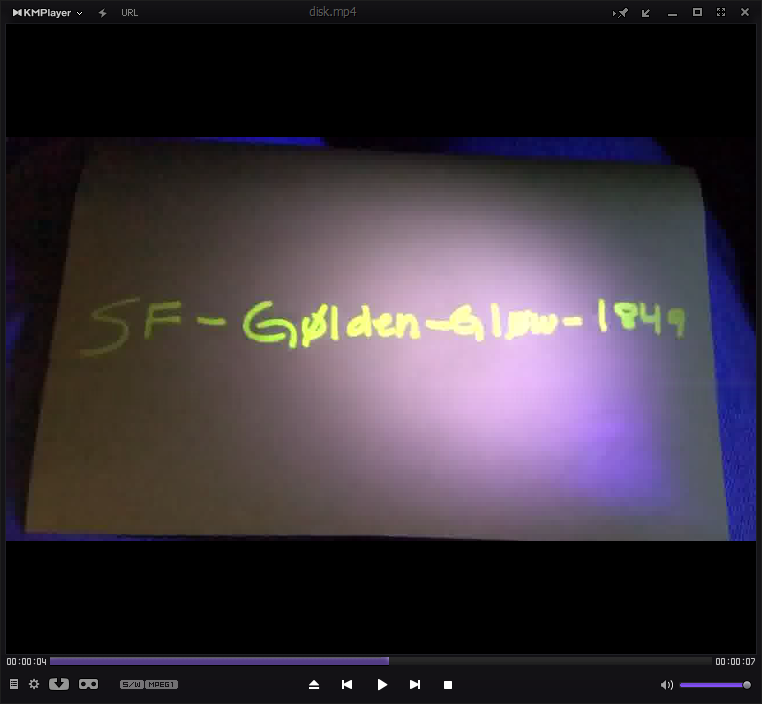 KMPlayer URL disk.mp4
SF-Gølden-Gløw-1849
00:00:04 00:00:07
S/W MPEG1